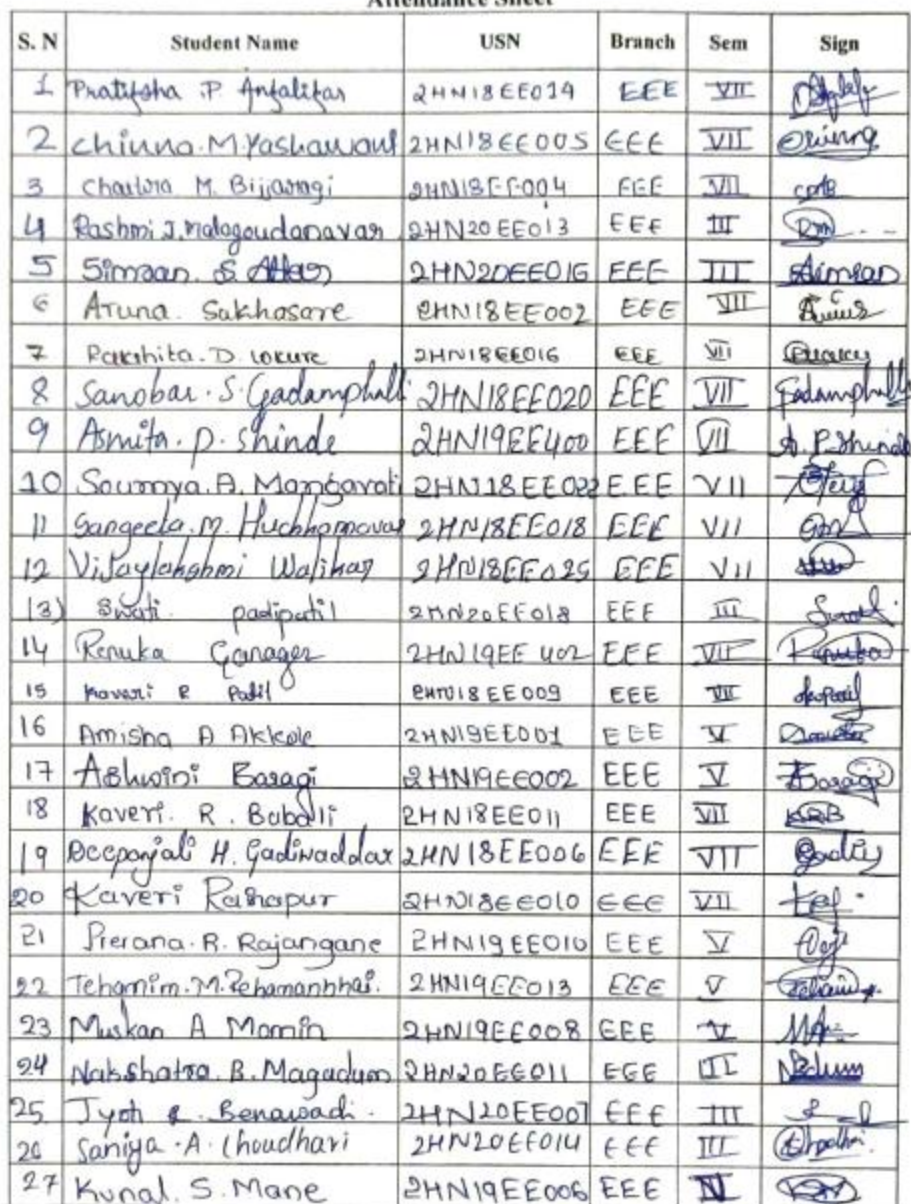 Attendance Sheet
S. N Student Name USN Branch Sem Sign
1 Pratiksha .P Anjalikar 2HN18EE014 EEE VII
2 Chinna.M.Yashawant 2HN18EE005 EEE VII
3 Chaitra M. Bijjaragi 2HN18EE004 EEE VII
4 Rashmi J. Malagoudanavar 2HN20EE013 EEE III
5 Simraan S Attar 2HN20EE016 EEE III Simraan
6 Aruna. Sakhasare 2HN18EE002 EEE VII
7 Rakshita. D. Lokure 2HN18EE016 EEE VII
8 Sanobar. S. Gadamphalli 2HN18EE020 EEE VII Gadamphalli
9 Asmita. P. Shinde 2HN19EE400 EEE VII A. P. Shinde
10 Soumya. A. Mangavati 2HN18EE022 EEE VII
11 Sangeeta. M. Huchhannavar 2HN18EE018 EEE VII
12 Vijaylakshmi Walikar 2HN18EE025 EEE VII
13) Swati padipatil 2HN20EE018 EEE III
14 Renuka Ganager 2HN19EE402 EEE VII Renuka
15 Kaveri R Patil 2HN18EE009 EEE VII
16 Amisha A Akkole 2HN19EE001 EEE V
17 Ashwini Basagi 2HN19EE002 EEE V Basagi
18 Kaveri. R. Baballi 2HN18EE011 EEE VII KRB
19 Deepanjali H. Gadiwaddar 2HN18EE006 EEE VII
20 Kaveri Rashapur 2HN18EE010 EEE VII
21 Prerana. R. Rajangane 2HN19EE010 EEE V
22 Tehamim. M. 2HN19EE013 EEE V
23 Muskan A Momin 2HN19EE008 EEE V
24 Nakshatra. B. Magadum 2HN20EE011 EEE III
25 Jyoti Benawadi. 2HN20EE007 EEE III
26 Saniya. A. Choudhari 2HN20EE014 EEE III
27 Kunal. S. Mane 2HN19EE006 EEE